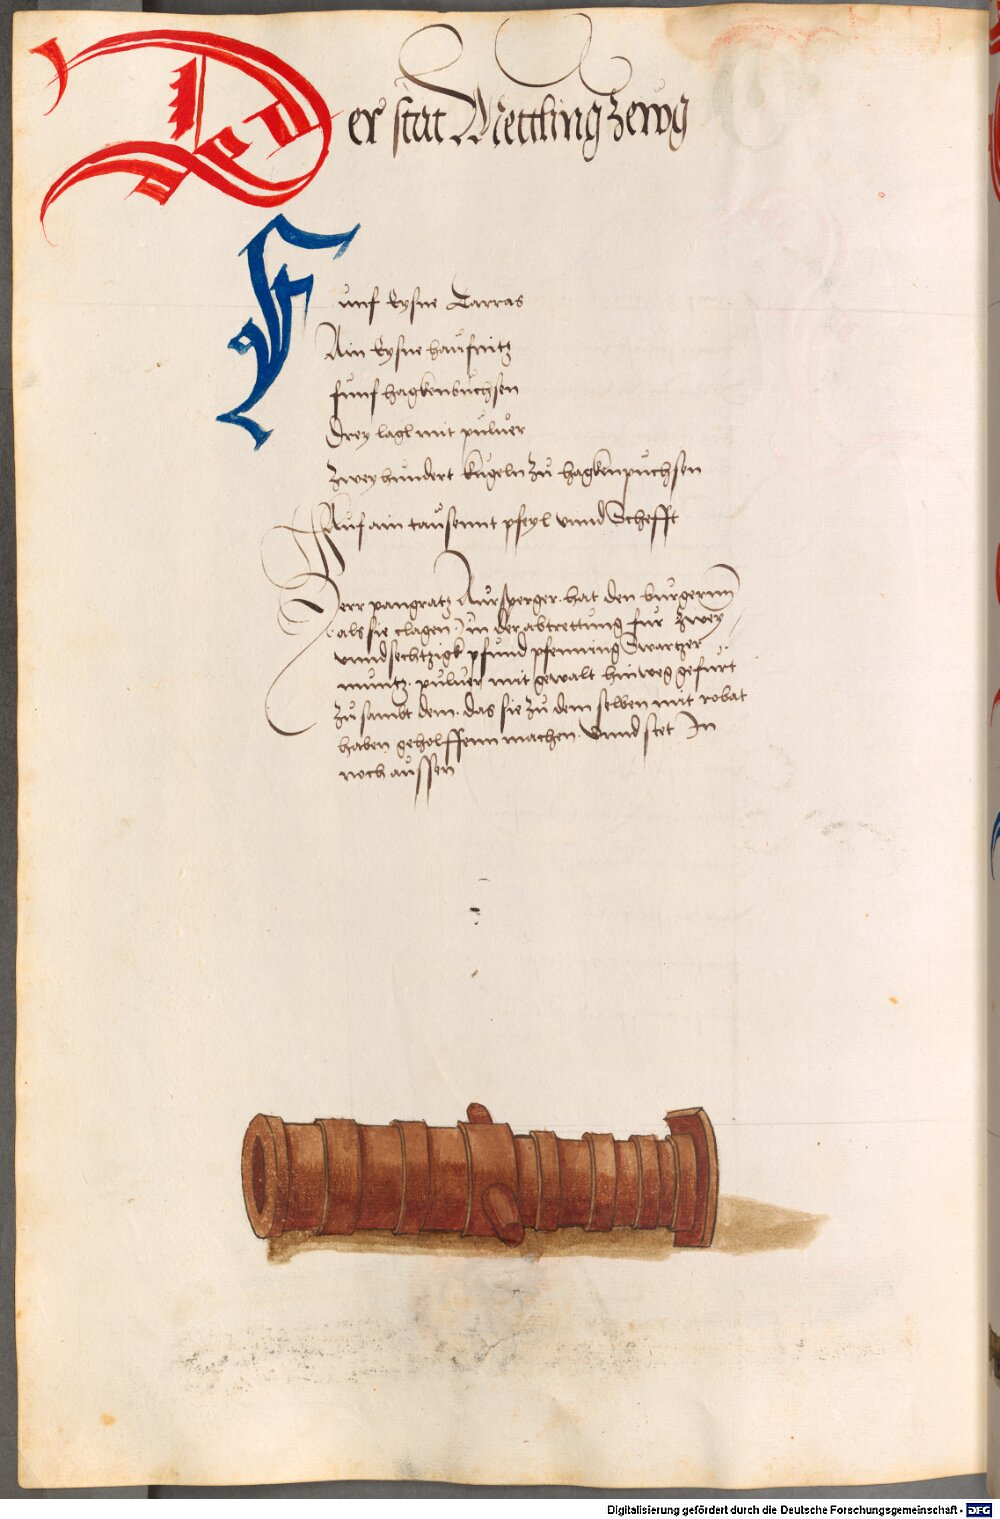 Der stat Mettling Zewg
Funf Eysne Tarras
Ain Eysne haufnitz
funf hagkenbuchsen
Drey lagl mit puluer
Zwey hundert kugeln zu hagkenpuchsen
Auf ain tausennt pfeyl vnnd Schefft
Herr pangratz Aursperger hat den burgernn
als sie clagen In der abtrettung fur zwey
vnnd sechtzigk pfund pfenning Swartzer
muntz puluer mit gewalt hinweg gefurt
zu sambt dem das sie zu dem selben mit robat
haben geholffenn machen Vnnd stet In
noch aussen
Digitalisierung gefördert durch die Deutsche Forschungsgemeinschaft - DFG